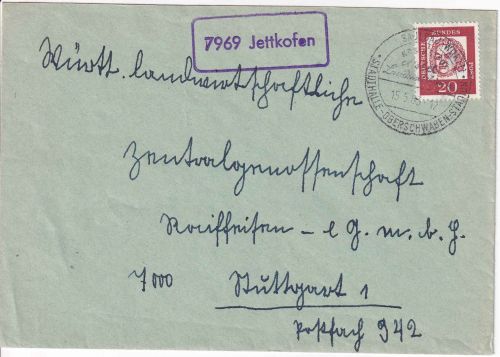 7969 Jettkofen
DEUTSCHE BUNDESPOST
20
STADTHALLE-OBERSCHWABEN-STADT
Württ. landwirtschaftliche
Zentralgenossenschaft
Raiffeisen - e G. m. b. H.
7000 Stuttgart 1
Postfach 942